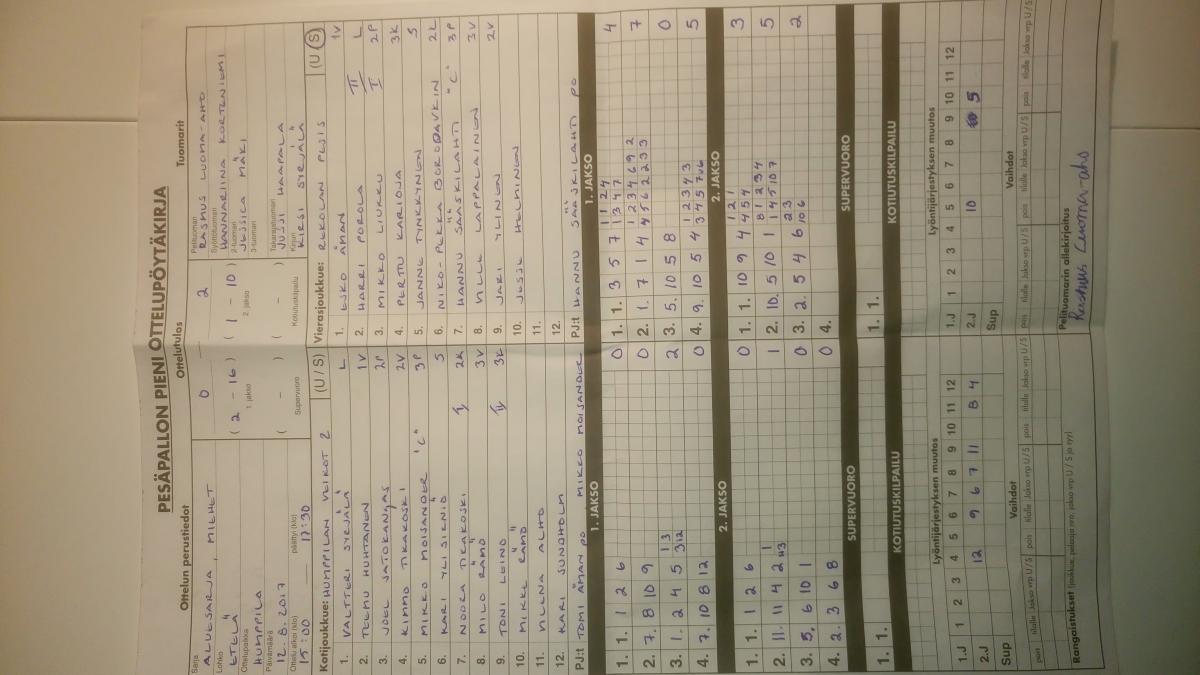 PESÄPALLON PIENI OTTELUPÖYTÄKIRJA
Ottelun perustiedot
Sarja
ALUESARJA, MIEHET
Lohko
ETELÄ
Ottelupaikka
HUMPPILA
Päivämäärä
12.8.2017
Ottelu alkoi (klo) päättyi (klo)
15:00 17:30
Ottelutulos
0 2
( 2 - 16 ) ( 1 - 10 )
1. jakso 2. jakso
( - ) ( - )
Supervuoro Kotiutuskilpailu
Tuomarit
Pelituomari
RASMUS LUOMA-AHO
Syöttötuomari
HANNARIINA KORTENIEMI
2-tuomari
JESSICA MÄKI
3-tuomari
Takarajatuomari
JUSSI HAAPALA
Kirjuri
KIRSI SYRJÄLÄ
Kotijoukkue: HUMPPILAN VEIKOT 2 (U / S)
1. VALTTERI SYRJÄLÄ L
2. TEEMU HUHTANEN 1V
3. JOEL SATOKANGAS 2P
4. KIMMO TIKAKOSKI 2V
5. MIKKO MOISANDER "C" 3P
6. KARI YLISIRNIÖ S
7. NOORA TIKAKOSKI 2K
8. MILO RÄMÖ 3V
9. TONI LEINO 3K
10. MIKE RÄMÖ
11. MIENA ALHO
12. KARI SUNDHOLM
PJ:t TOMI ÅMAN PO MIKKO MOISANDER
Vierasjoukkue: REKOLAN PESIS (U / S)
1. ESKO ÅMAN 1V
2. HARRI POROLA II L
3. MIKKO LIUKKU I 2P
4. PERTTU KARIOJA 3K
5. JANNE TYNKKYNEN S
6. NIKO-PEKKA BORODAVKIN 2K
7. HANNU SÄÄSKILAHTI "C" 3P
8. VILLE LAPPALAINEN 3V
9. JARI YLINEN 2V
10. JESSE HELMINEN
11.
12.
PJ:t HANNU SÄÄSKILAHTI PO
1. JAKSO
1. 1. 1 2 6 0
2. 7. 8 10 9 0
3. 1. 2 4 5 13 312 2
4. 7. 10 8 12 0
2. JAKSO
1. 1. 1 2 6 0
2. 11. 11 4 2 1
3. 5. 6 10 1 0
4. 2. 3 6 8 0
SUPERVUORO
1. 1.
KOTIUTUSKILPAILU
1. JAKSO
1. 1. 3 5 7 1124 1347 4
2. 1. 7 1 4 1234692 4562233 7
3. 5. 10 5 8 0
4. 9. 10 5 4 12343 5
2. JAKSO
1. 1. 10 9 4 121 454 3
2. 10. 5 10 1 81234 145107 5
3. 2. 5 4 6 23 106 2
4.
SUPERVUORO
1. 1.
KOTIUTUSKILPAILU
Lyöntijärjestyksen muutos
1 2 3 4 5 6 7 8 9 10 11 12
1.J
2.J 12 9 6 7 11 8 4
Sup
Vaihdot
pois tilalle Jakso vrp U / S pois tilalle Jakso vrp U / S pois tilalle Jakso vrp U / S
Rangaistukset (joukkue, pelaaja nro, jakso vrp U / S ja syy)
Lyöntijärjestyksen muutos
1 2 3 4 5 6 7 8 9 10 11 12
1.J
2.J 10 5
Sup
Vaihdot
pois tilalle Jakso vrp U / S pois tilalle Jakso vrp U / S pois tilalle Jakso vrp U / S
Pelituomarin allekirjoitus
Rasmus Luoma-aho